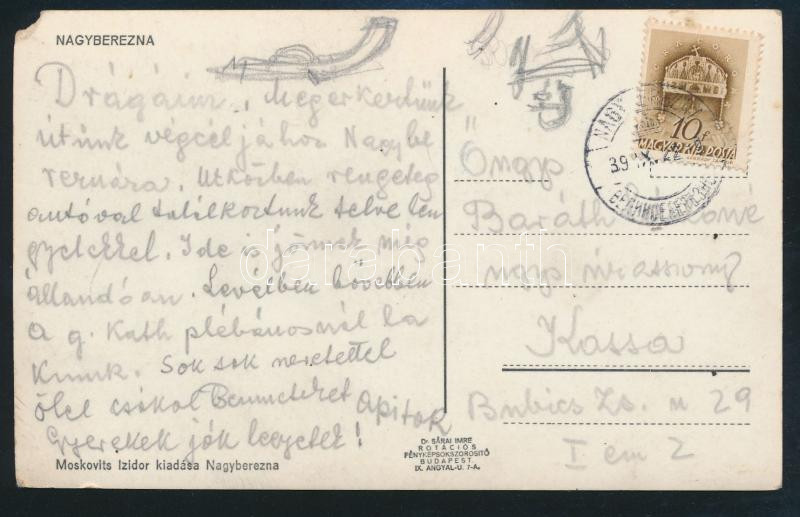 NAGYBEREZNA
Drágáim, Megérkeztünk
útunk végcéljához Nagybe
reznára. Útközben rengeteg
autóval találkoztunk telve len
gyelekkel. Ide is jönnek még
állandóan. Levélben bővebben
A g. Kath plébánosnál la
kunk. Sok sok szeretettel
ölel csókol Benneteket Apitok
Gyerekek jók legyetek!
Moskovits Izidor kiadása Nagyberezna
Dr. SÁRAI IMRE
ROTÁCIÓS
FÉNYKÉPSOKSZOROSITÓ
BUDAPEST,
IX. ANGYAL-U. 7-A.
10f
MAGYAR KIR. POSTA
NAGY
39 X. 22
Öngy
Baráth
ngys úrasszony
Kassa
Bubics Zs. u 29
I em 2
darabanth